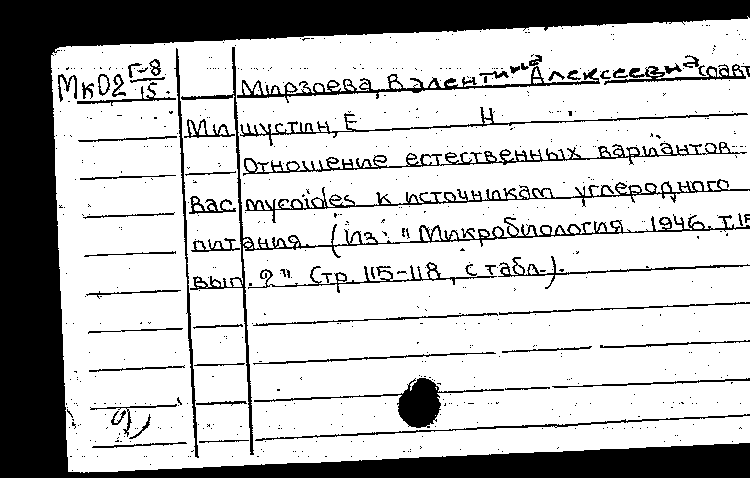 МкО2 Г-8/15. Мирзоева, Валентина Алексеевна соавт
Мишустин, Е Н.
Отношение естественных вариантов
Вас mycoides к источникам углеродного
питания. (Из: "Микробиология. 1946. Т.15
вып. 2". Стр. 115-118, с табл.).